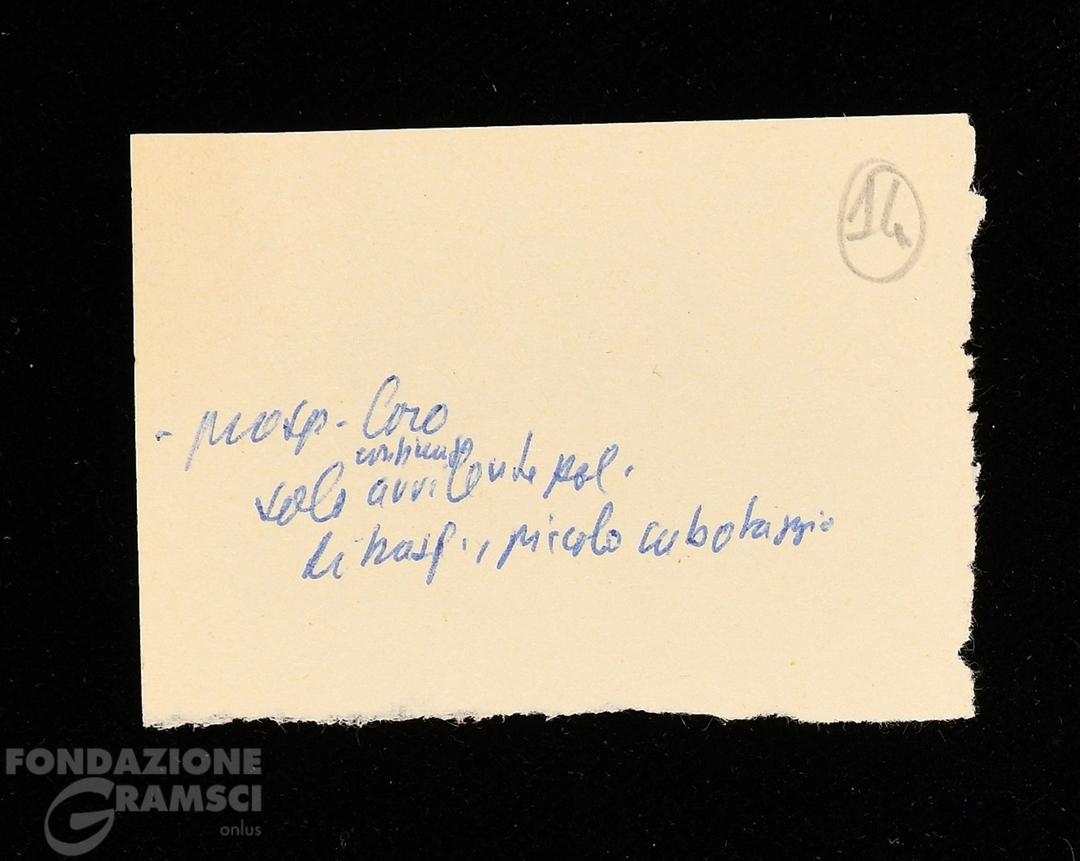 14
- prosp. loro
continua
solo avvilente pol.
di trasf., piccolo cabotaggio
FONDAZIONE
GRAMSCI
onlus